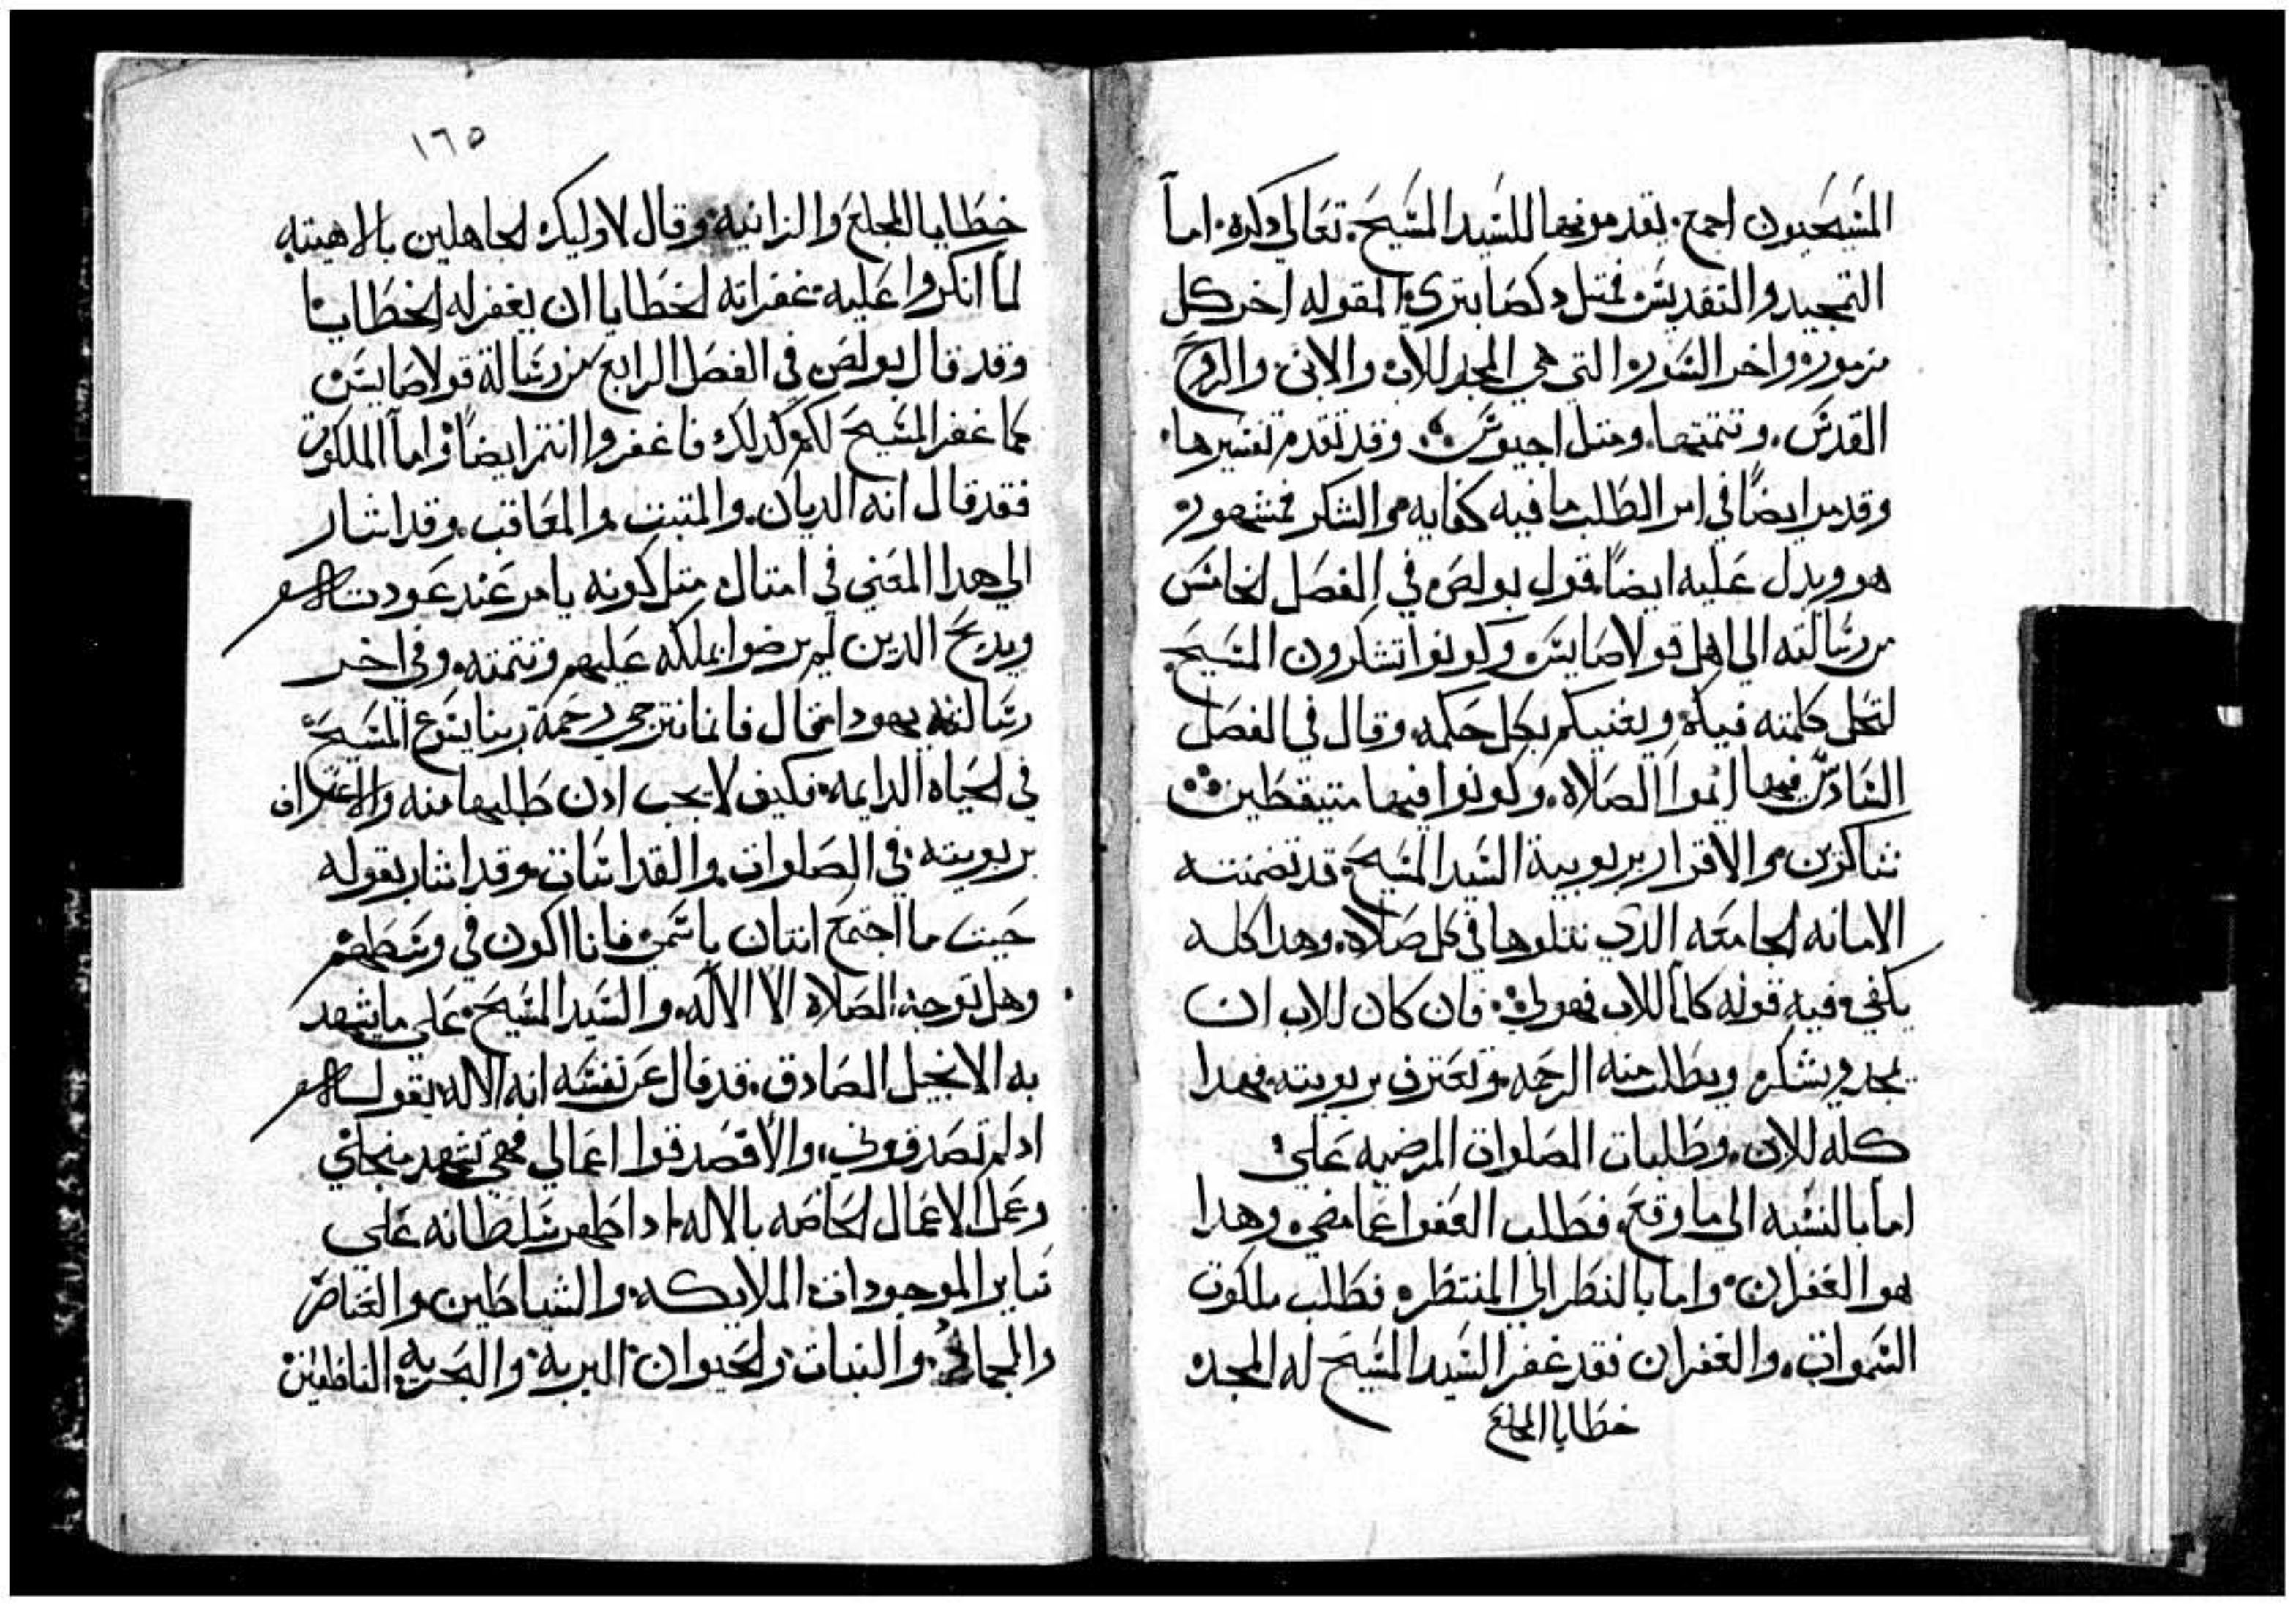 المسيحيون اجمع. يقدمونها للسيد المسيح. تعالي دكره. اما
التمجيد والتقديس فمتل دكصابتري المقوله اخر كل
مزمور واخر السوره التي هي المجد للاب والابن والروح
القدس. وتتمتها. ومتل اجيوس. وقد تقدم تفسيرها.
وقد مر ايضاً في امر الطلب ما فيه كفايه والشكر فمشهور
هو ويدل عليه ايضاً قول بولص في الفصل الخامس
من رسالته الي اهل قولاصايس وكونوا تشكرون المسيح
لتحل كلمته فيكم ويغنيكم بكل حكمه وقال في الفصل
السادس فيها ايموا الصلاه. وكونوا فيها متيقظين
شاكرين والاقرار بربوبية السيد المسيح قد تضمنته
الامانه الجامعه الدي نتلوها في كل صلاه. وهدا كله
يكفي فيه قوله كلما للاب فهو لي. فان كان للاب ان
يمجد ويشكر ويطلب منه الرحمه وتعترف بربوبيته فهدا
كله للابن. وطلبات الصلوات المرضيه علي
اما بالنسبه الي ما وقع فطلب العفو عما مضي وهدا
هو الغفران. واما بالنظر الي المنتظر فطلب ملكوت
السموات. والغفران فقد غفر السيد المسيح له المجد
خطايا المخلع
١٦٥
خطايا المخلع والزانيه وقال لاوليك الجاهلين بالاهيته
لما انكروا عليه غفرانه لخطايا ان يغفر له الخطايا
وقد قال بولص في الفصل الرابع من رسالة قولاصايس
كما غفر المسيح لكم كدلك فاغفروا انتم ايضاً واما الملكوت
فقد قال انه الديان. والمتبت والمعاقب. وقد اشار
الي هدا المعني في امتال متل كونه يامر عند عودت
ويدبح الدين لم يرضوا بملكه عليهم وتتمته. وفي اخر
رسالته يهودا قال فاننا نترجي رحمة ربنا يسوع المسيح
في الحياه الدايمه. فكيف لا يجب ادن طلبها منه والاعتراف
بربوبيته في الصلوات والقداسات وقد اشار بقوله
حيت ما اجتمع اتنان باسمي فانا اكون في وسطهم
وهل توجه الصلاة الا الاله. والسيد المسيح علي ما يشهد
به الانجيل الصادق. قد قال عن نفسه انه الاله بقوله
اد لم تصدقوني، والا فصدقوا اعمالي فهي تشهد من جلي
وعمل الاعمال الخاصه بالاله اد اظهر سلطانه علي
ساير الموجودات الملايكه. والشياطين والعناصر
والجماد. والنبات والحيوان البريه والبحريه الناطقين